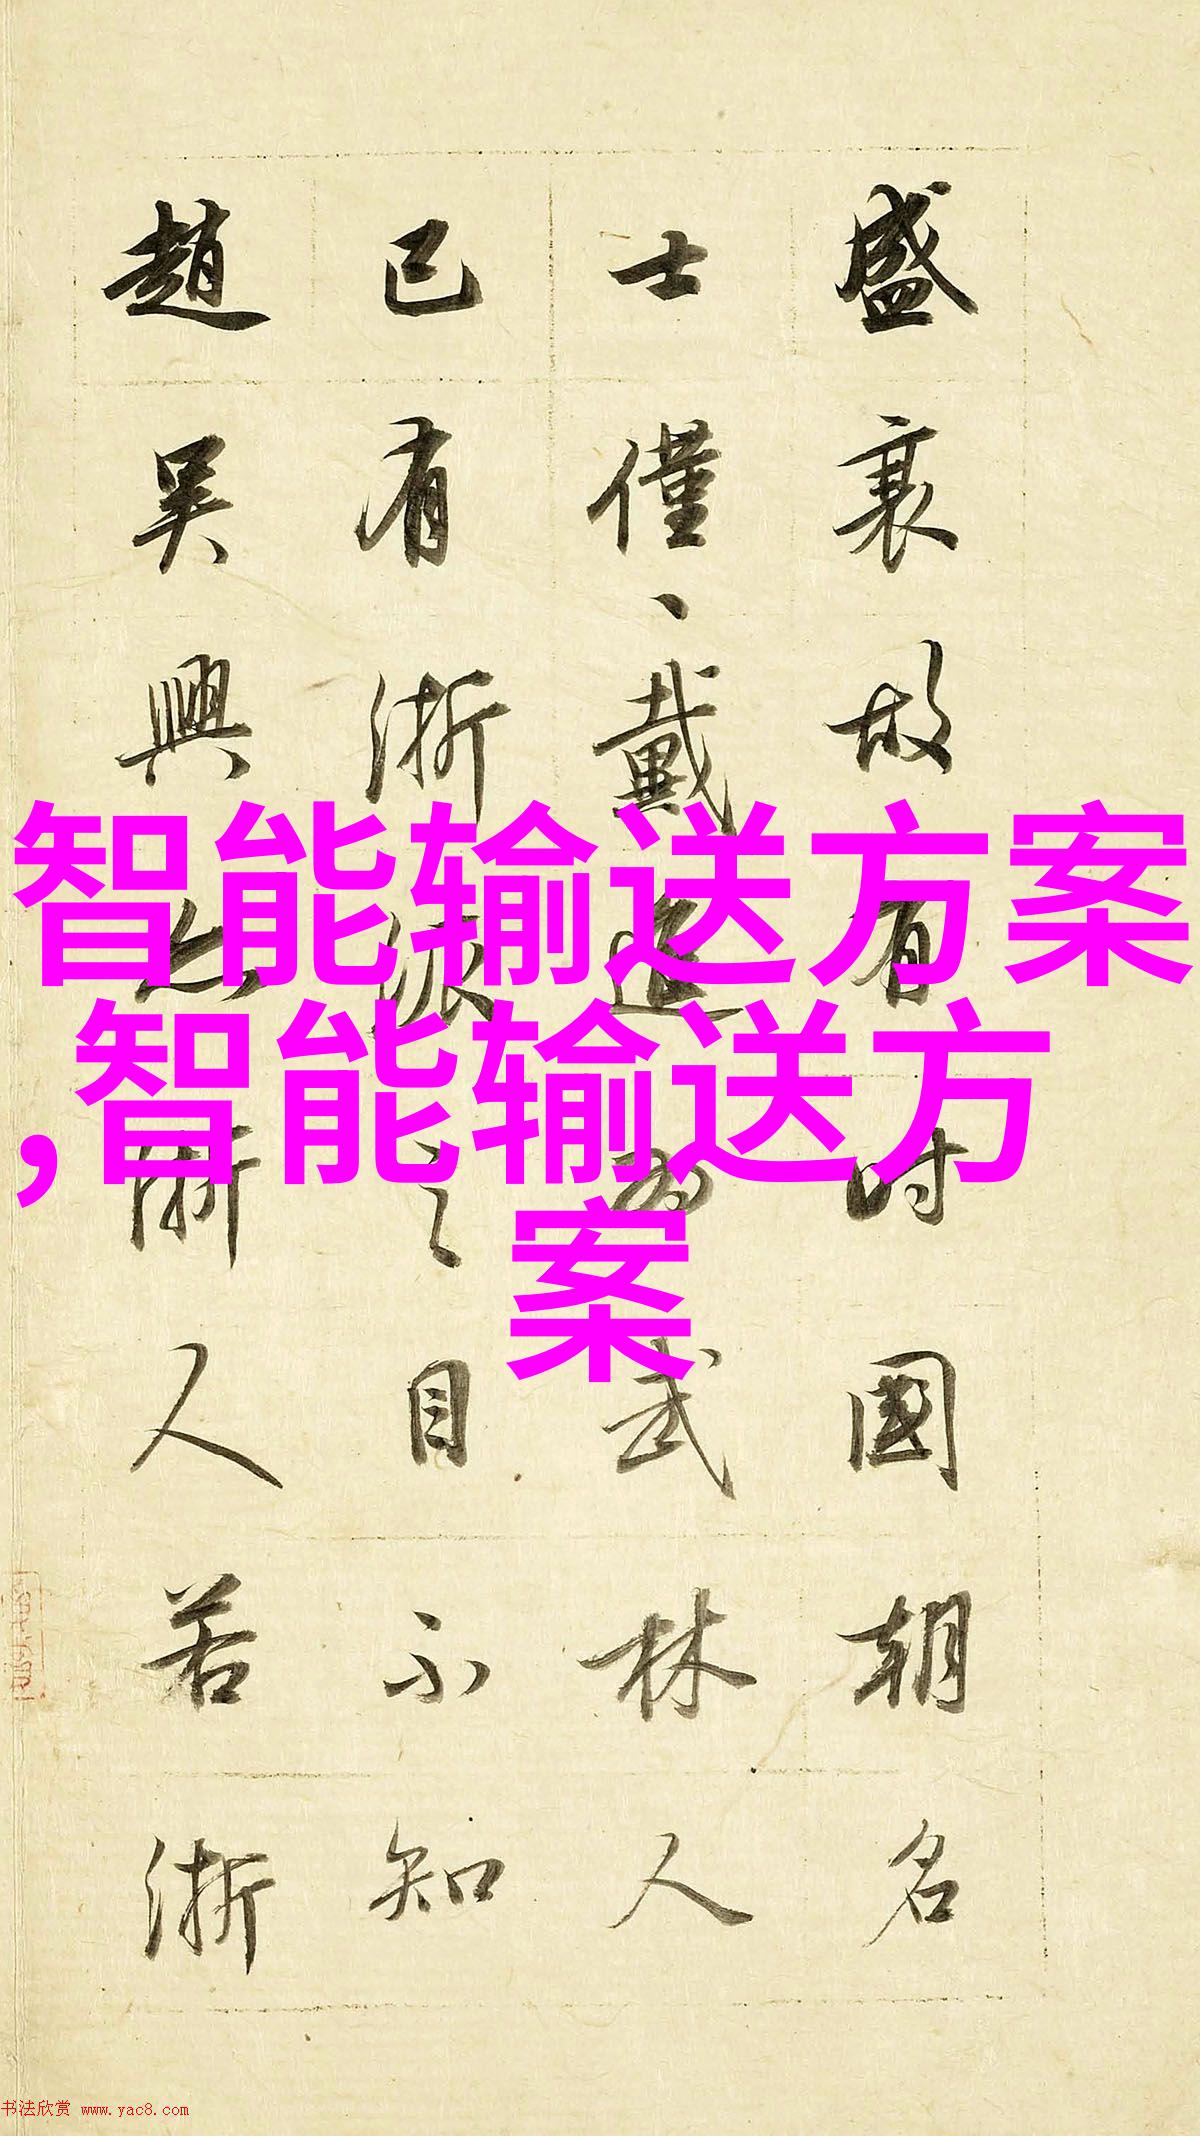 盛衰故有时國朝名
士僅、戴進為武林人
已有浙派之目不知
趙吳興亦浙人若浙
智能输送方案
,智能输送方
案
书法欣赏 www.yac8.com